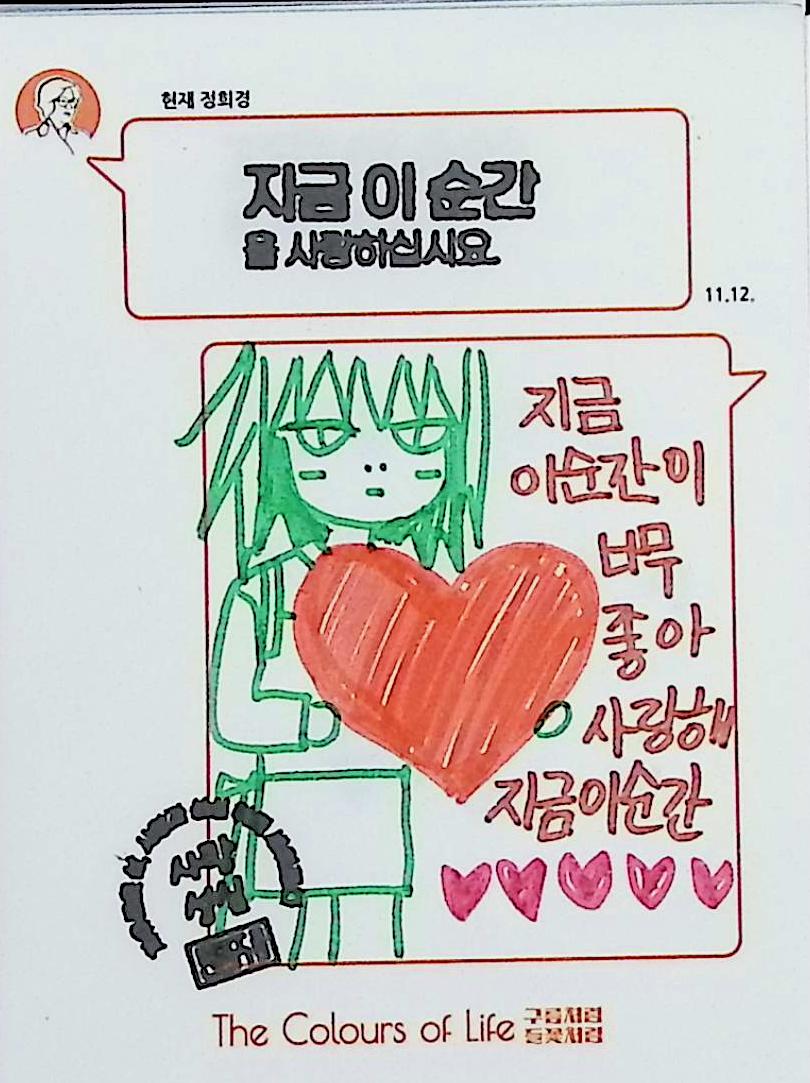 현재 정희경
지금 이 순간
을 사랑하십시요
11.12.
지금
이순간이
너무
좋아
사랑해
지금이순간
The Colours of Life
구름처럼
들꽃처럼